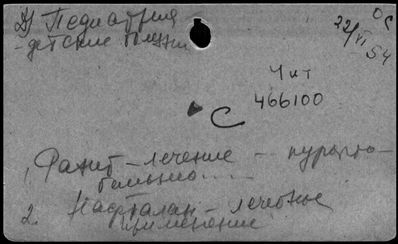 Педиатрия -
- детские болезни
22/VI 54
ОС
Чит
466100
С
1. Рахит - лечение - курортно-
больно.....
2. Нафталан - лечебное
применение